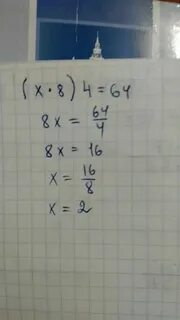 (x · 8) 4 = 64
8x = 64/4
8x = 16
x = 16/8
x = 2